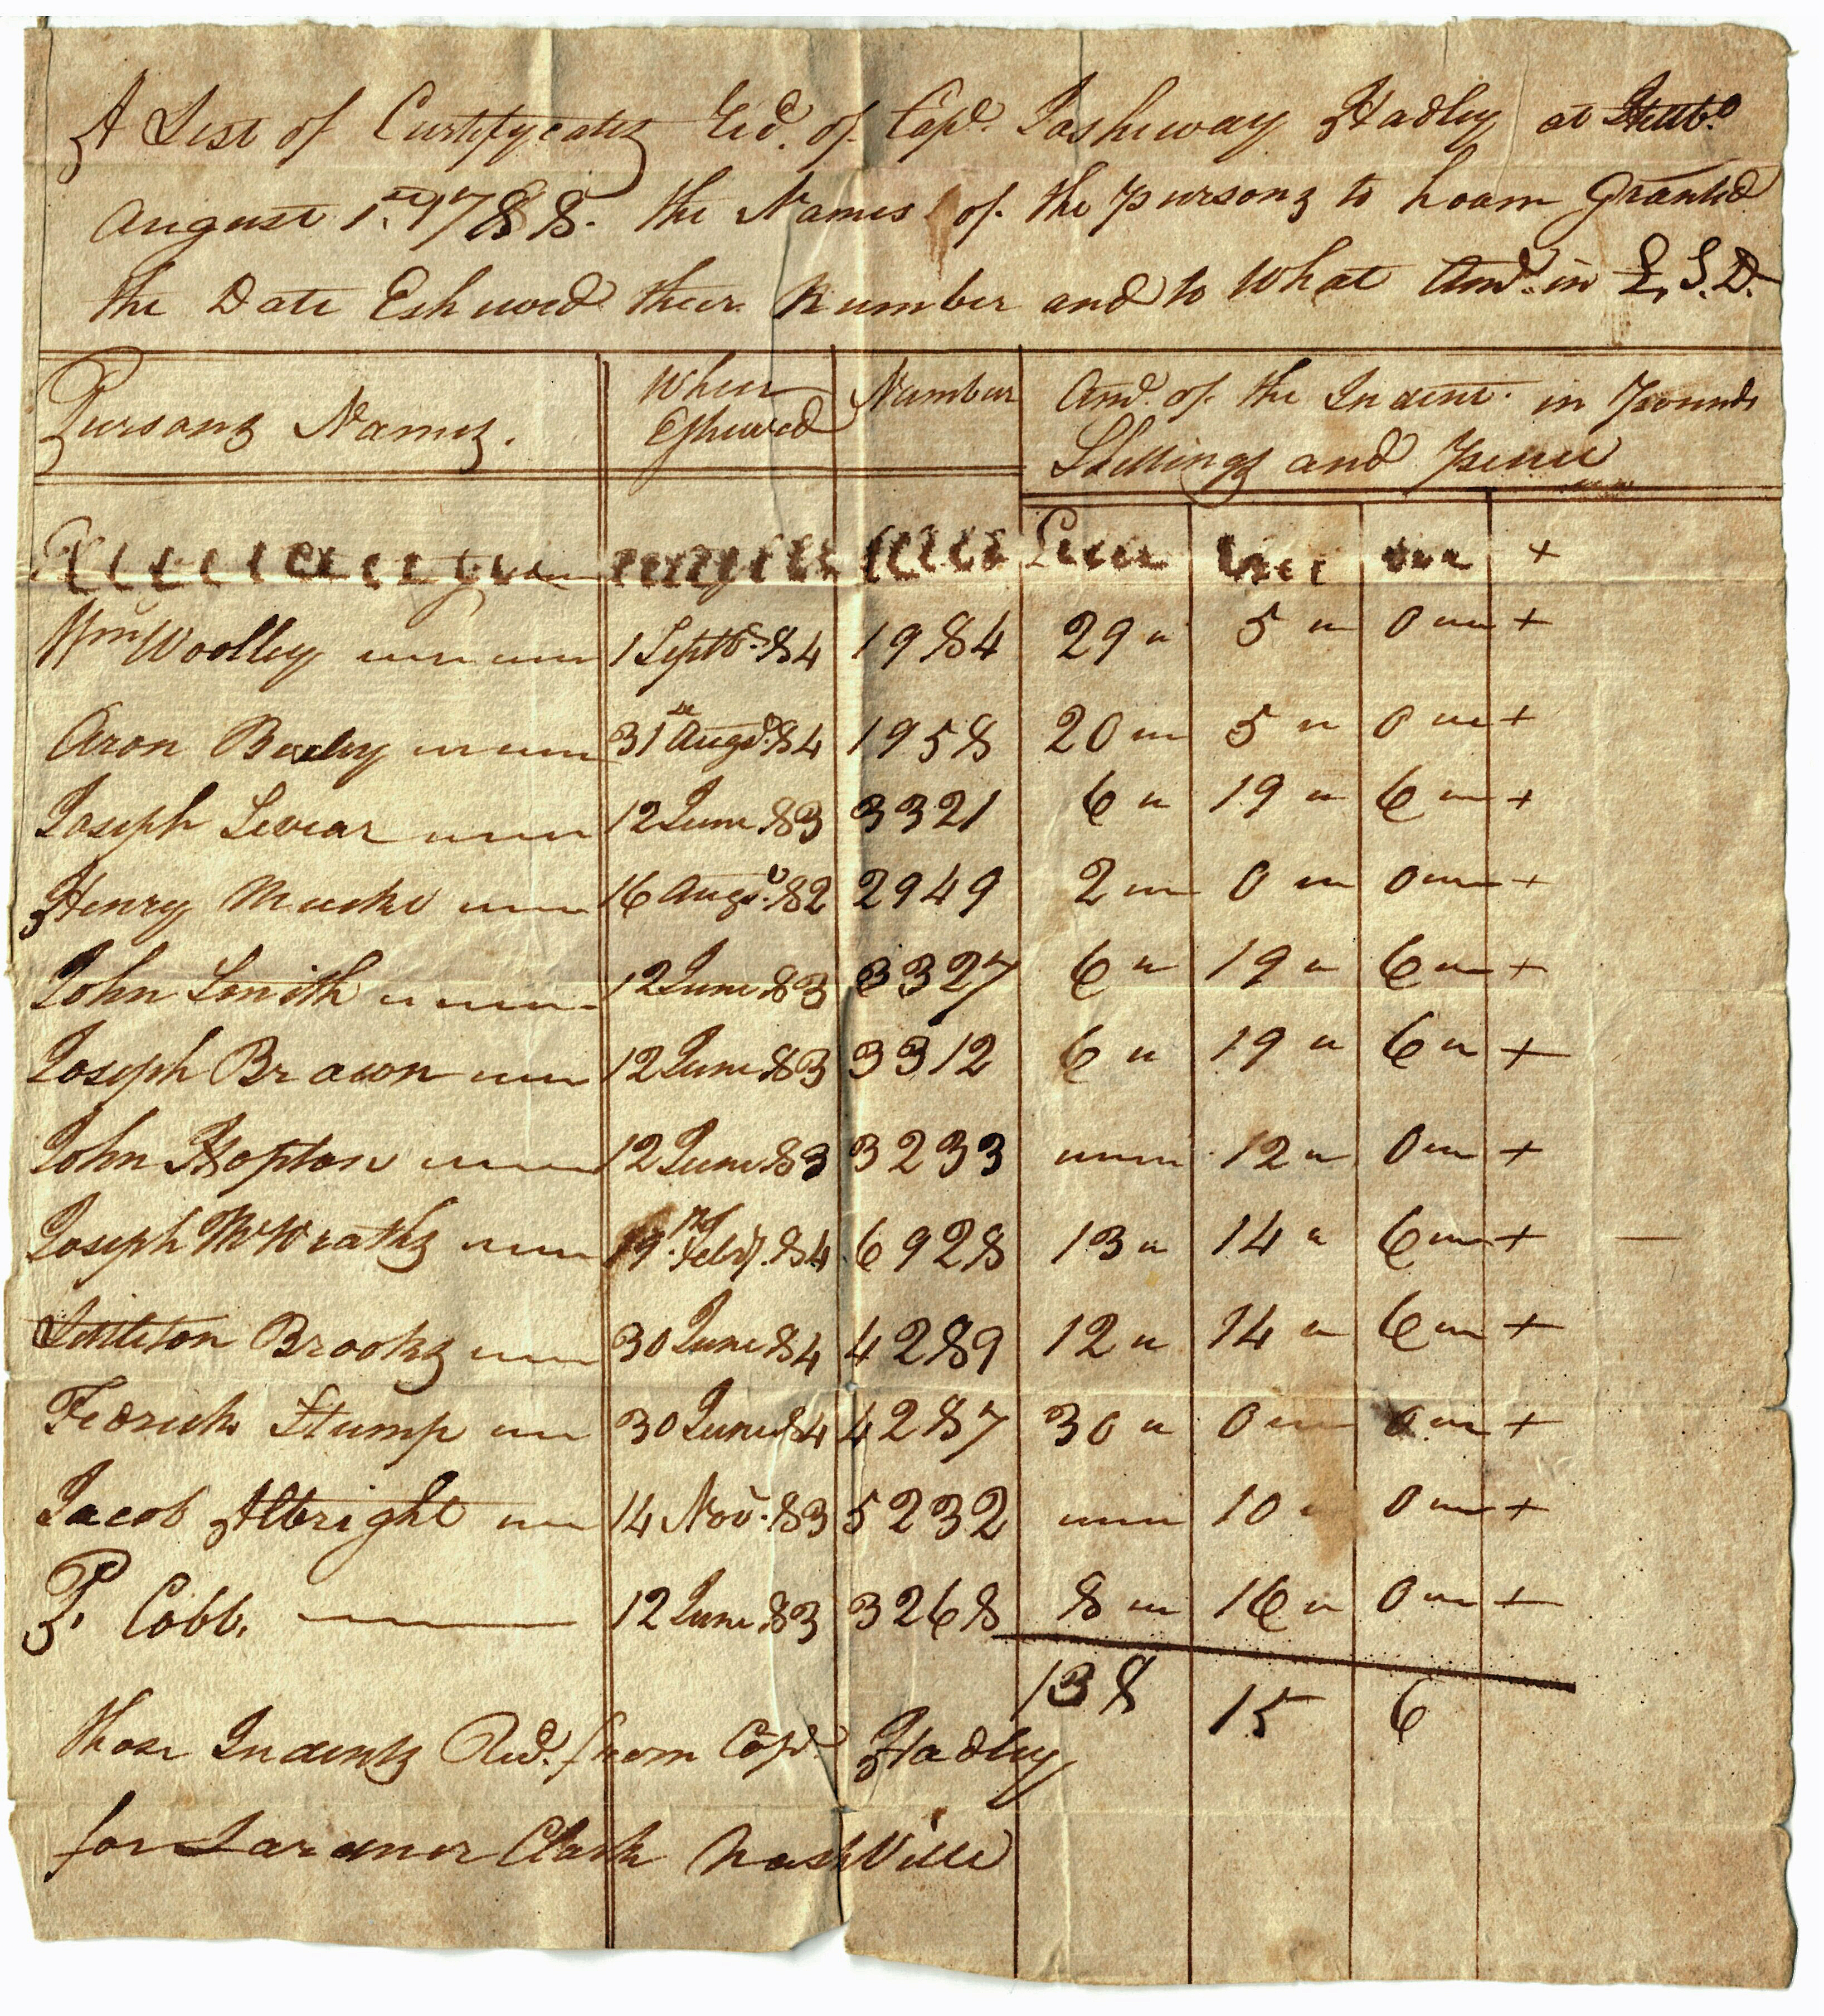 A List of Certifycatis Ricd. of Capt. Joshuway Hadley at Hillb.o
August 1.st 1788. the Names of the pursons to hoom Granted
the Date Eshuwed their Number and to What Amt. in £, S. D.
Pursons Names. When Eshuwed Number Amt. of the Indent. in Pounds Shillings and Pence
+
Wm Woolley 1 Septbr. 84 1984 29 5 0 +
Aron Bexley 31st Augst. 84 1958 20 5 0 +
Joseph Leviar 12 June 83 3321 6 19 6 +
Henry Meeke 16 Augst. 82 2949 2 0 0 +
John Smith 12 June 83 3327 6 19 6 +
Joseph Brawn 12 June 83 3312 6 19 6 +
John Hopton 12 June 83 3233 12 0 +
Joseph McWraths 19. Febry. 84 6928 13 14 6 +
Littleton Brooks 30 June 84 4289 12 14 6 +
Fedrick Stump 30 June 84 4287 30 0 0 +
Jacob Albright 14 Nov. 83 5232 10 0 +
P. Cobb. 12 June 83 3268 8 16 0 +
138 15 6
those Indents Ricd. from Capt. Hadley
for Lardner Clark NashVille